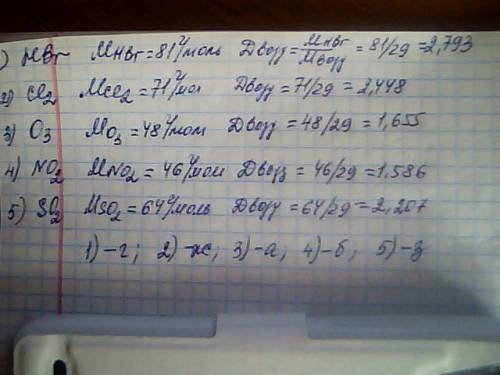 1) HBr M HBr = 81 г/моль Dвозд = M HBr / M возд = 81/29 = 2,793
2) Cl2 MCl2 = 71 г/мол Dвозд = 71/29 = 2,448
3) O3 MO3 = 48 г/мол Dвозд = 48/29 = 1,655
4) NO2 MNO2 = 46 г/мол Dвозд = 46/29 = 1,586
5) SO2 MSO2 = 64 г/моль Dвозд = 64/29 = 2,207
1) - г; 2) - ж; 3) - а; 4) - б; 5) - з